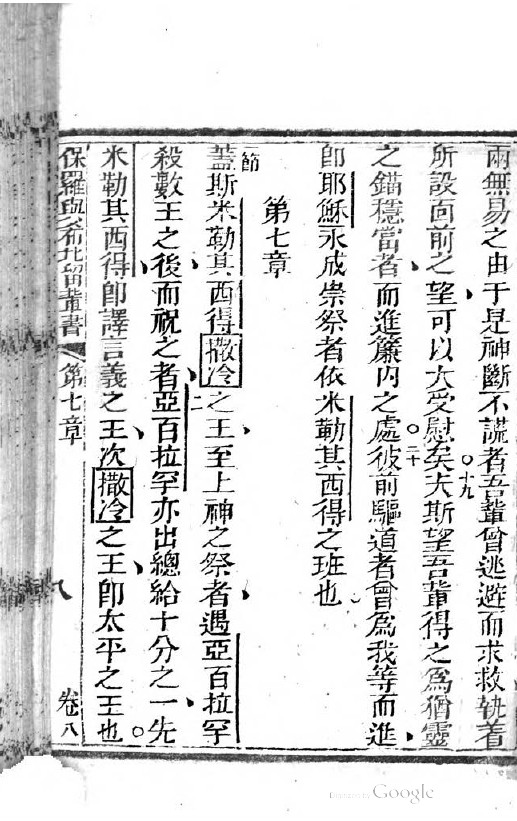 兩無易之由于是神斷不謊者吾輩曾逃避而求救執着
十九
所設向前之望可以大受慰矣夫斯望吾輩得之爲猶靈
二十
之錨穩當者而進簾內之處彼前驅道者曾爲我等而進
卽耶穌永成崇祭者依米勒其西得之班也
第七章
節
蓋斯米勒其西得撒冷之王至上神之祭者遇亞百拉罕
二
殺數王之後而祝之者亞百拉罕亦出總給十分之一先
米勒其西得卽譯言義之王次撒冷之王卽太平之王也
保羅與希比留輩書 第七章 卷八
Google